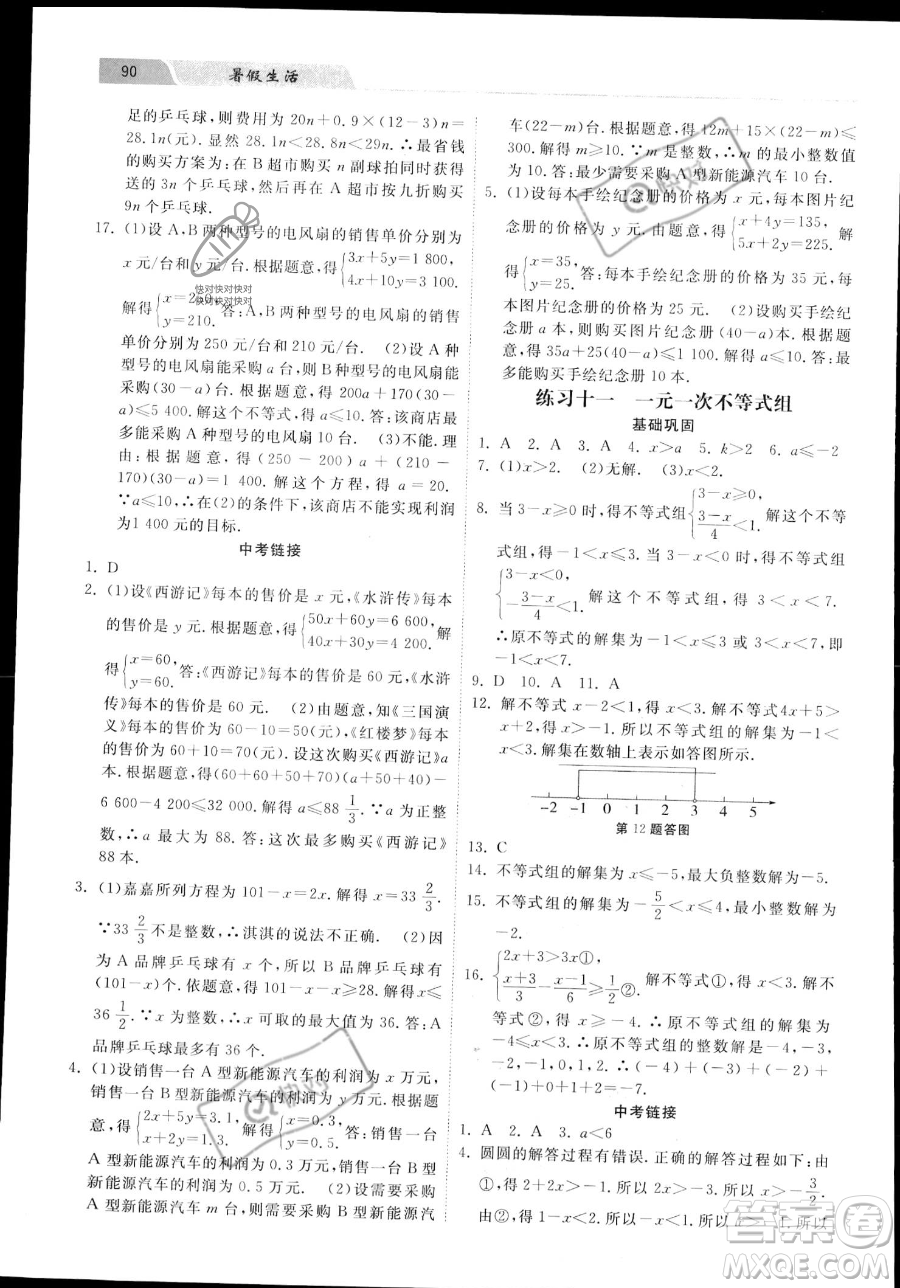 90
暑假生活
足的乒乓球,则费用为 20n+0.9×(12-3)n=
28.1n(元). 显然 28.1n<28.8n<29n. ∴最省钱
的购买方案为:在 B 超市购买 n 副球拍同时获得
送的 3n 个乒乓球后再在 A 超市按九折购买
9n 个乒乓球.
17. (1)设A,B两种型号的电风扇的销售单价分别为
x 元/台和 y 元/台. 根据题意,得{3x+5y=1 800, 4x+10y=3 100.
解得{x=250, y=210. 答:A,B 两种型号的电风扇的销售
单价分别为 250 元/台和 210 元/台. (2)设 A 种
型号的电风扇能采购 a 台,则 B 种型号的电风扇能
采购(30-a)台. 根据题意,得 200a+170(30-
a)≤5 400. 解这个不等式,得 a≤10. 答:该商店最
多能采购 A 种型号的电风扇 10 台. (3)不能. 理
由:根据题意,得(250-200)a+(210-
170)(30-a)=1 400. 解这个方程,得 a=20.
∵a≤10,∴在(2)的条件下,该商店不能实现利润
为1 400 元的目标.
中考链接
1. D
2. (1)设《西游记》每本的售价是 x 元,《水浒传》每本
的售价是 y 元. 根据题意,得{50x+60y=6 600, 40x+30y=4 200. 解
得{x=60, y=60. 答:《西游记》每本的售价是 60 元,《水浒
传》每本的售价是 60 元. (2)由题意,知《三国演
义》每本售价为 60-10=50(元),《红楼梦》每本的
售价为 60+10=70(元). 设这次购买《西游记》
a 本. 根据题意,得(60+50+60+70)a≤
6 600-4 200≤32 000. 解得 a≤88 1/3. ∵a 为正整
数,∴a 最大为 88. 答:这次最多购买《西游记》
88 本.
3. (1)嘉嘉所列方程为 101-x=2x. 解得 x=33 2/3.
∵33 2/3不是整数,∴淇淇的说法不正确. (2)因
为 A 品牌乒乓球有 x 个,所以 B 品牌乒乓球有
(101-x)个. 根据题意,得 101-x-x≥28. 解得 x≤
36 1/2. ∵x 为整数,∴x 可取的最大值为 36. 答:A
品牌乒乓球最多有 36 个.
4. (1)设销售一台 A 型新能源汽车的利润为 x 万元,
销售一台 B 型新能源汽车的利润为 y 万元. 根据题
意,得{2x+5y=3.1, x+2y=1.3. 解得{x=0.3, y=0.5. 答:销售一台
A 型新能源汽车的利润为 0.3 万元,销售一台 B
型新能源汽车的利润为 0.5 万元. (2)设需要采购
A 型新能源汽车 m 台,则采购 B 型新能源汽
车(22-m)台. 根据题意,得 12m+15×(22-m)≤
300. 解得 m≥10. ∵m 为整数,∴m 的最小整数值
为 10. 答:最少需要采购 A 型新能源汽车 10 台.
5. (1)设每本手绘纪念册的价格为 x 元,每本图片纪
念册的价格为 y 元. 由题意,得{x+4y=135, 5x+2y=225. 解
得{x=35, y=25. 答:每本手绘纪念册的价格为 35 元,每
本图片纪念册的价格为 25 元. (2)设购买手绘纪
念册 a 本,则购买图片纪念册(40-a)本. 根据题
意,得 35a+25(40-a)≤1 100. 解得 a≤10. 答:最
多能购买手绘纪念册 10 本.
练习十一 一元一次不等式组
基础巩固
1. A 2. A 3. A 4. x>a 5. k>2 6. a≤-2
7. (1)x>2. (2)无解. (3)x<2.
8. 当 3-x≥0 时,不等式组{3-x≥0, (3-x)/4<1. 解这个不等
式组,得-1<x≤3. 当 3-x<0 时,不等式组
{3-x<0, -(3-x)/4<1. 解这个不等式组,得 3<x<7.
∴原不等式的解集为-1<x≤3 或 3<x<7,即
-1<x<7.
9. D 10. A 11. A
12. 解不等式 x-2<1,得 x<3. 解不等式4x+5>
x+2,得 x>-1. 所以不等式组的解集为-1<
x<3. 解集在数轴上表示如答图所示.
-2 -1 0 1 2 3 4 5
第12题答图
13. C
14. 不等式组的解集为 x≤-5,最大负整数解为-5.
15. 不等式组的解集为-5/2<x≤4,最小整数解为
-2.
16. {2x+3>3x①, (x+3)/3-(x-1)/6≥1/2②. 解不等式①,得 x<3. 解不
等式②,得 x≥-4. ∴原不等式组的解集为
-4≤x<3. ∴原不等式组的所有整数解的和为
-4-3-2-1+0+1+2=(-4)+(-3)=-7.
中考链接
1. A 2. A 3. a<6
4. 圆圆的解答过程有错误. 正确的解答过程如下:由
①,得 2+2x>-1. 所以 2x>-3. 所以 x>-3/2.
由②,得 1-x<2. 所以-x<1. 所以 x>-1. 所以
快对快对快对
快对快对快对
快对
快对
答案圈
MXQE.COM